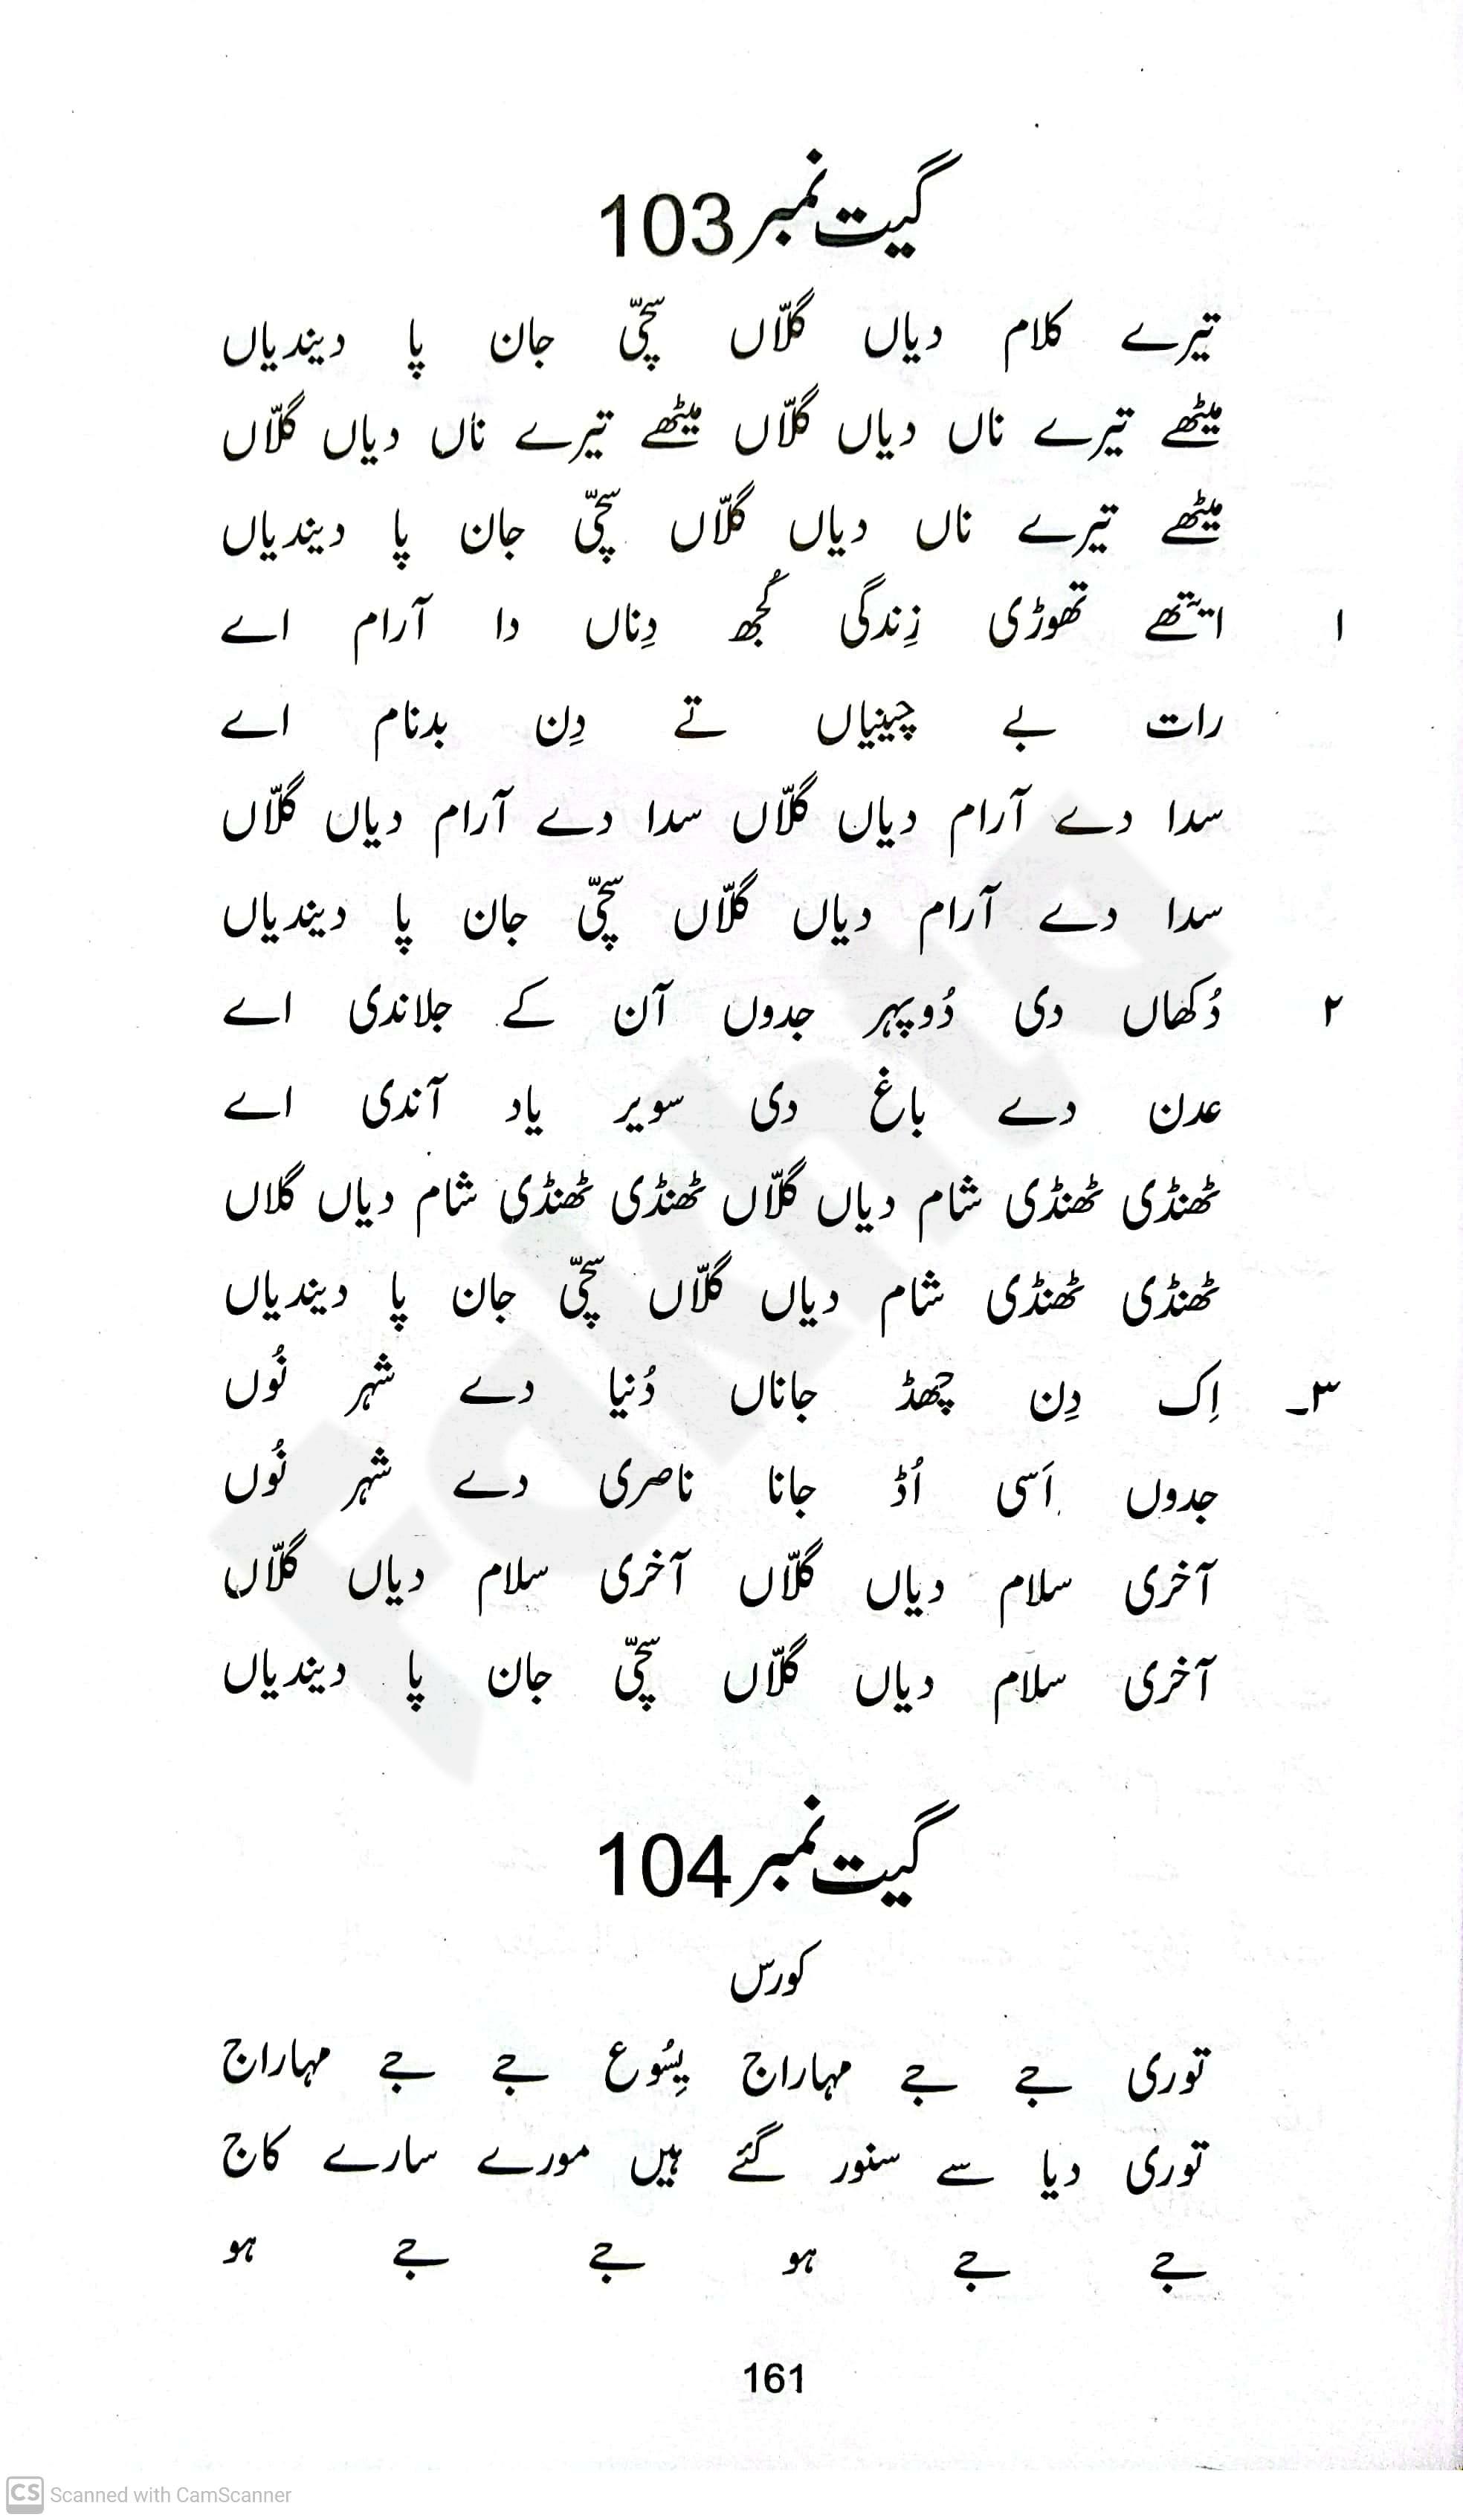 گیت نمبر 103
تیرے کلام دیاں گلّاں سچّی جان پا دیندیاں
میٹھے تیرے ناں دیاں گلّاں میٹھے تیرے ناں دیاں گلّاں
میٹھے تیرے ناں دیاں گلّاں سچّی جان پا دیندیاں
۱ ایتھے تھوڑی زِندگی کُجھ دِناں دا آرام اے
رات بے چینیاں تے دِن بدنام اے
سدا دے آرام دیاں گلّاں سدا دے آرام دیاں گلّاں
سدا دے آرام دیاں گلّاں سچّی جان پا دیندیاں
۲ دُکھاں دی دُوپہر جدوں آن کے جلاندی اے
عدن دے باغ دی سویر یاد آندی اے
ٹھنڈی ٹھنڈی شام دیاں گلّاں ٹھنڈی ٹھنڈی شام دیاں گلاں
ٹھنڈی ٹھنڈی شام دیاں گلّاں سچّی جان پا دیندیاں
۳۔ اِک دِن چھڈ جاناں دُنیا دے شہر نُوں
جدوں اَسی اُڈ جانا ناصری دے شہر نُوں
آخری سلام دیاں گلّاں آخری سلام دیاں گلّاں
آخری سلام دیاں گلّاں سچّی جان پا دیندیاں
گیت نمبر 104
کورس
توری جے جے مہاراج یِسُوع جے جے مہاراج
توری دیا سے سنور گئے ہیں مورے سارے کاج
جے جے ہو جے جے ہو
161
Fakhta
CS Scanned with CamScanner